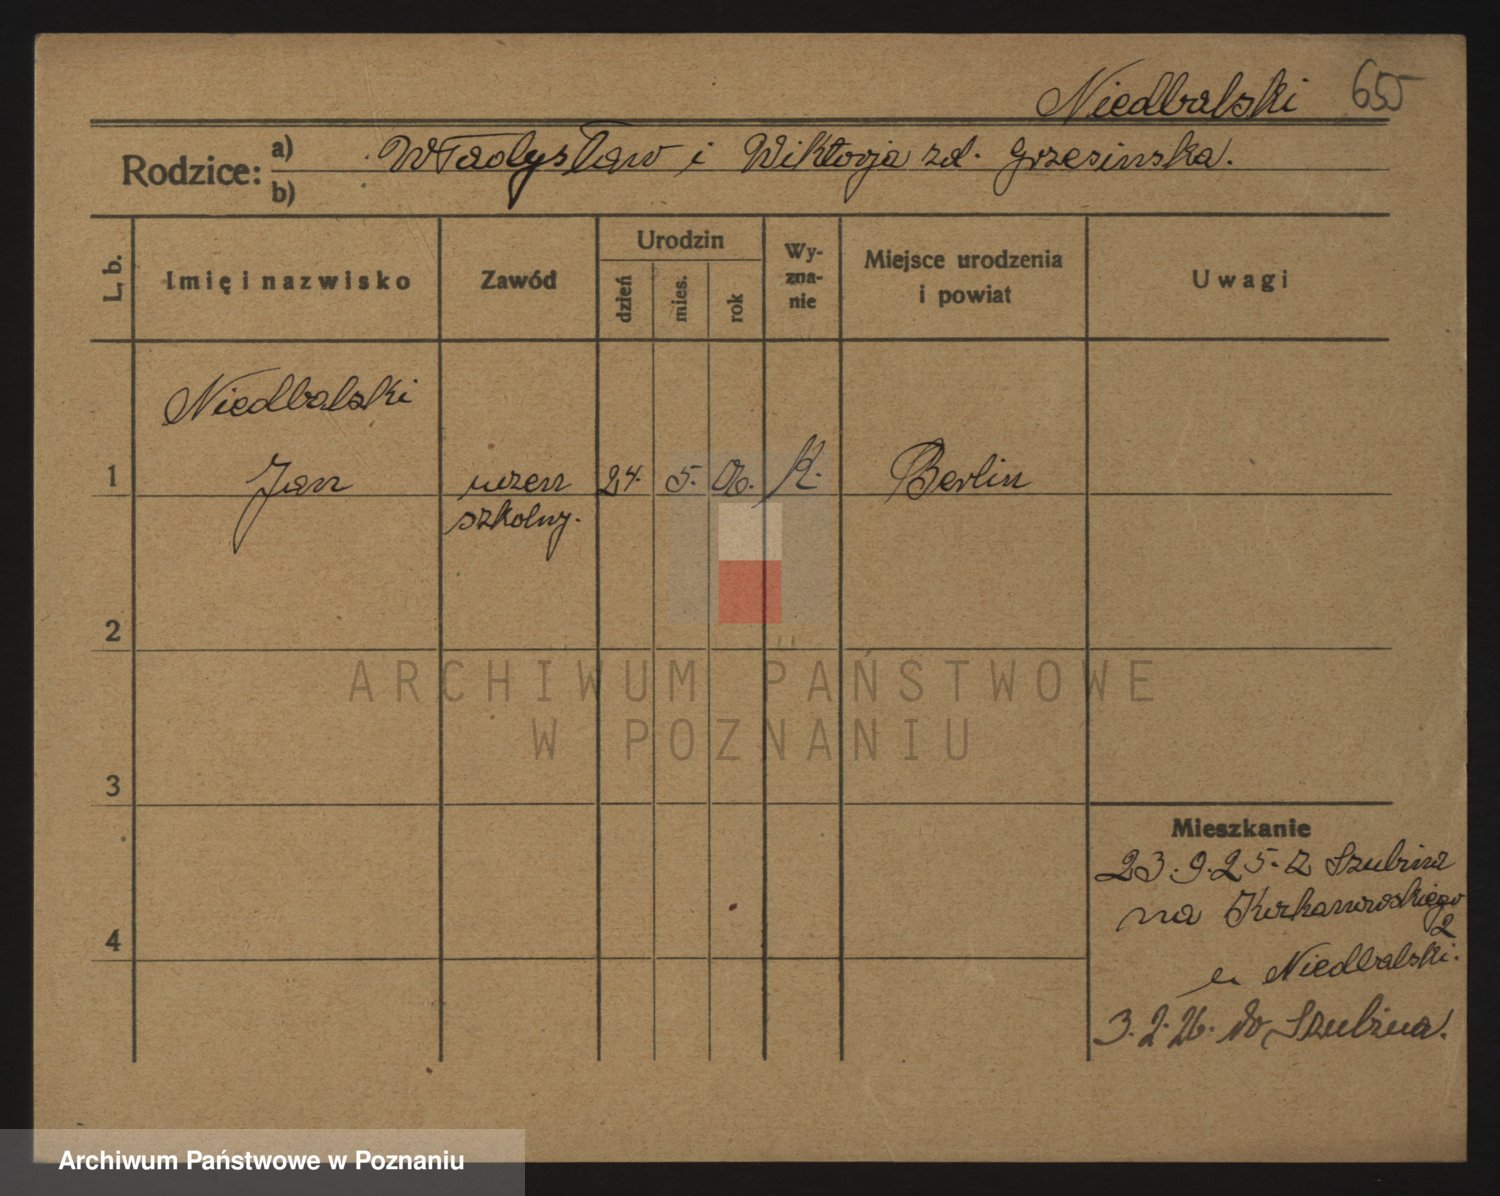 Niedbalski 655
Rodzice: a) Władysław i Wiktorja zd. Grzesinska.
b)
L. b. Imię i nazwisko Zawód Urodzin dzień mies. rok Wy-zna-nie Miejsce urodzenia i powiat Uwagi
Niedbalski
1 Jan uczen 24. 5. 06. K. Berlin
szkolny.
2
ARCHIWUM PAŃSTWOWE
W POZNANIU
3
Mieszkanie
23.9.25. z Szubina
na
2
4
u Niedbalski.
3.2.26. do Szubina.
Archiwum Państwowe w Poznaniu